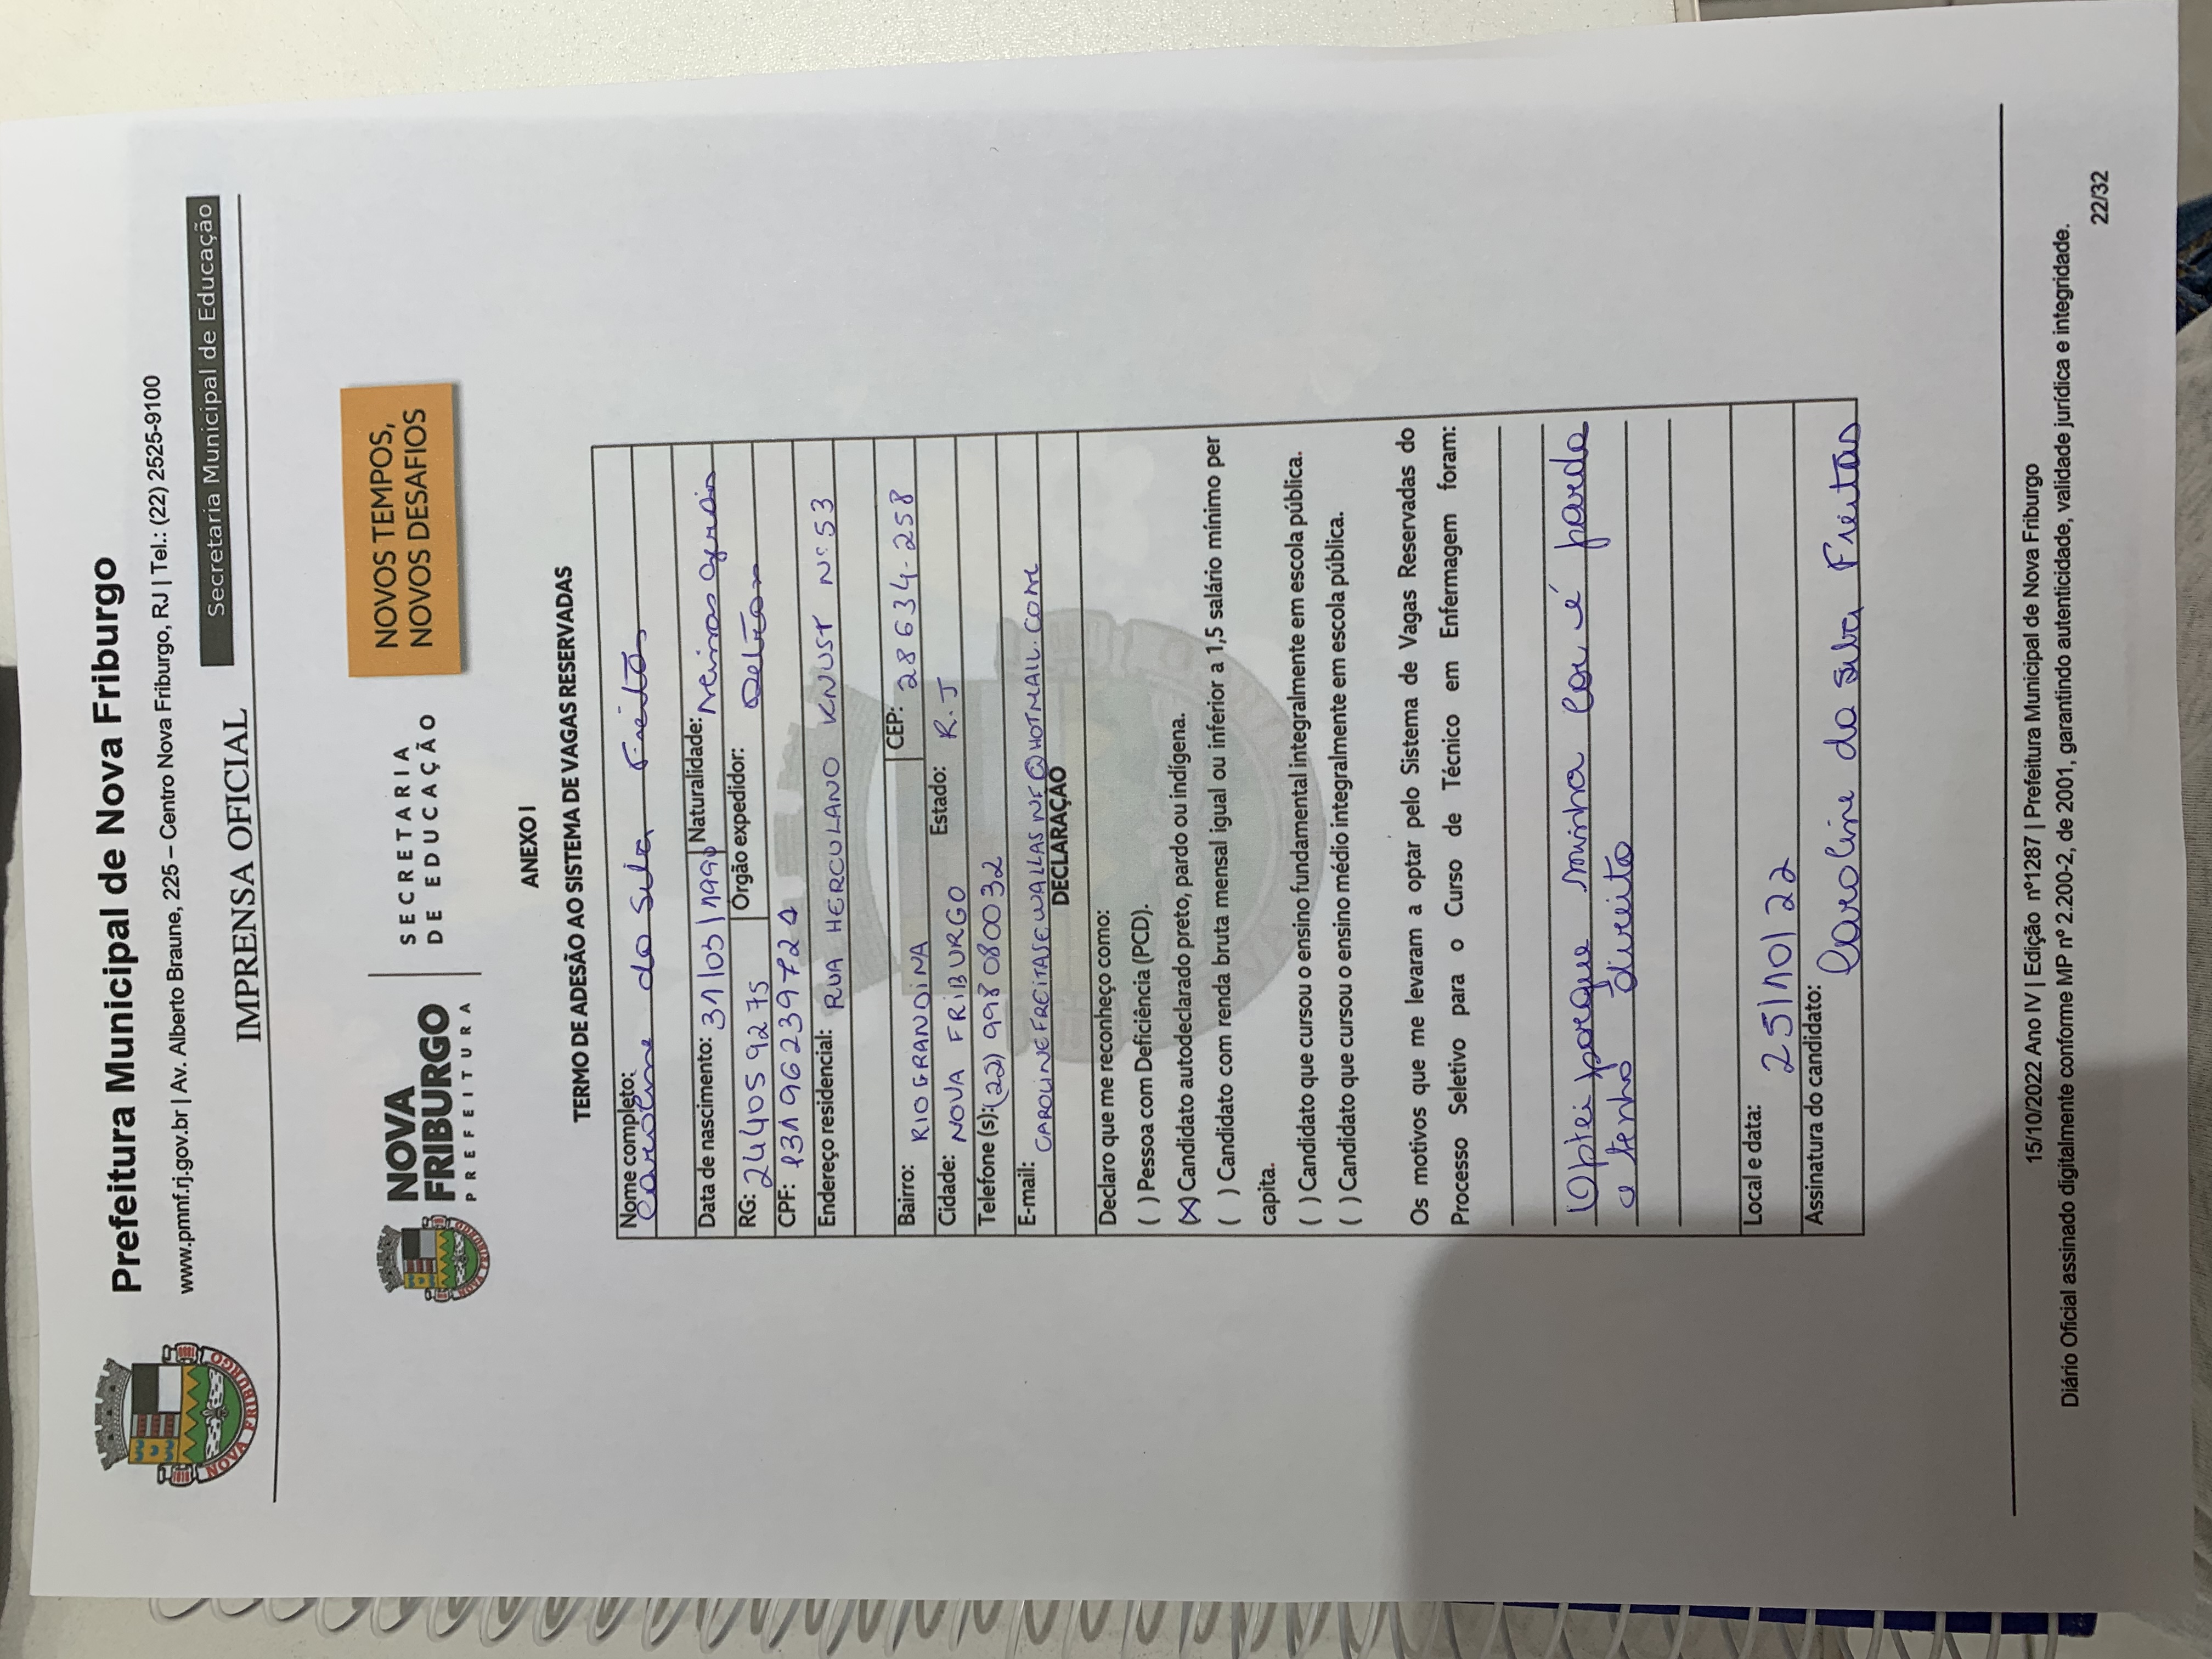 Prefeitura Municipal de Nova Friburgo
www.pmnf.rj.gov.br | Av. Alberto Braune, 225 – Centro Nova Friburgo, RJ | Tel.: (22) 2525-9100
Secretaria Municipal de Educação
IMPRENSA OFICIAL
NOVA FRIBURGO
NOVA
FRIBURGO
PREFEITURA
SECRETARIA
DE EDUCAÇÃO
NOVOS TEMPOS,
NOVOS DESAFIOS
ANEXO I
TERMO DE ADESÃO AO SISTEMA DE VAGAS RESERVADAS
Nome completo:
Caroline da Silva Freitas
Data de nascimento: 31/03/ Naturalidade: Minas Gerais
RG: 244059275 Órgão expedidor: Detran
CPF:
Endereço residencial: RUA HERCULANO KNUST Nº 53
Bairro: RIOGRANDINA CEP: 28634-258
Cidade: NOVA FRIBURGO Estado: R.J
Telefone (s): (22) 998080032
E-mail: CAROLINEFREITASEWALLASNF@HOTMAIL.COM
DECLARAÇÃO
Declaro que me reconheço como:
( ) Pessoa com Deficiência (PCD).
(X) Candidato autodeclarado preto, pardo ou indígena.
( ) Candidato com renda bruta mensal igual ou inferior a 1,5 salário mínimo per
capita.
( ) Candidato que cursou o ensino fundamental integralmente em escola pública.
( ) Candidato que cursou o ensino médio integralmente em escola pública.
Os motivos que me levaram a optar pelo Sistema de Vagas Reservadas do
Processo Seletivo para o Curso de Técnico em Enfermagem foram:
Optei porque minha cor é parda
e tenho direito
Local e data: 25/10/22
Assinatura do candidato: Caroline da Silva Freitas
15/10/2022 Ano IV | Edição nº1287 | Prefeitura Municipal de Nova Friburgo
Diário Oficial assinado digitalmente conforme MP nº 2.200-2, de 2001, garantindo autenticidade, validade jurídica e integridade.
22/32